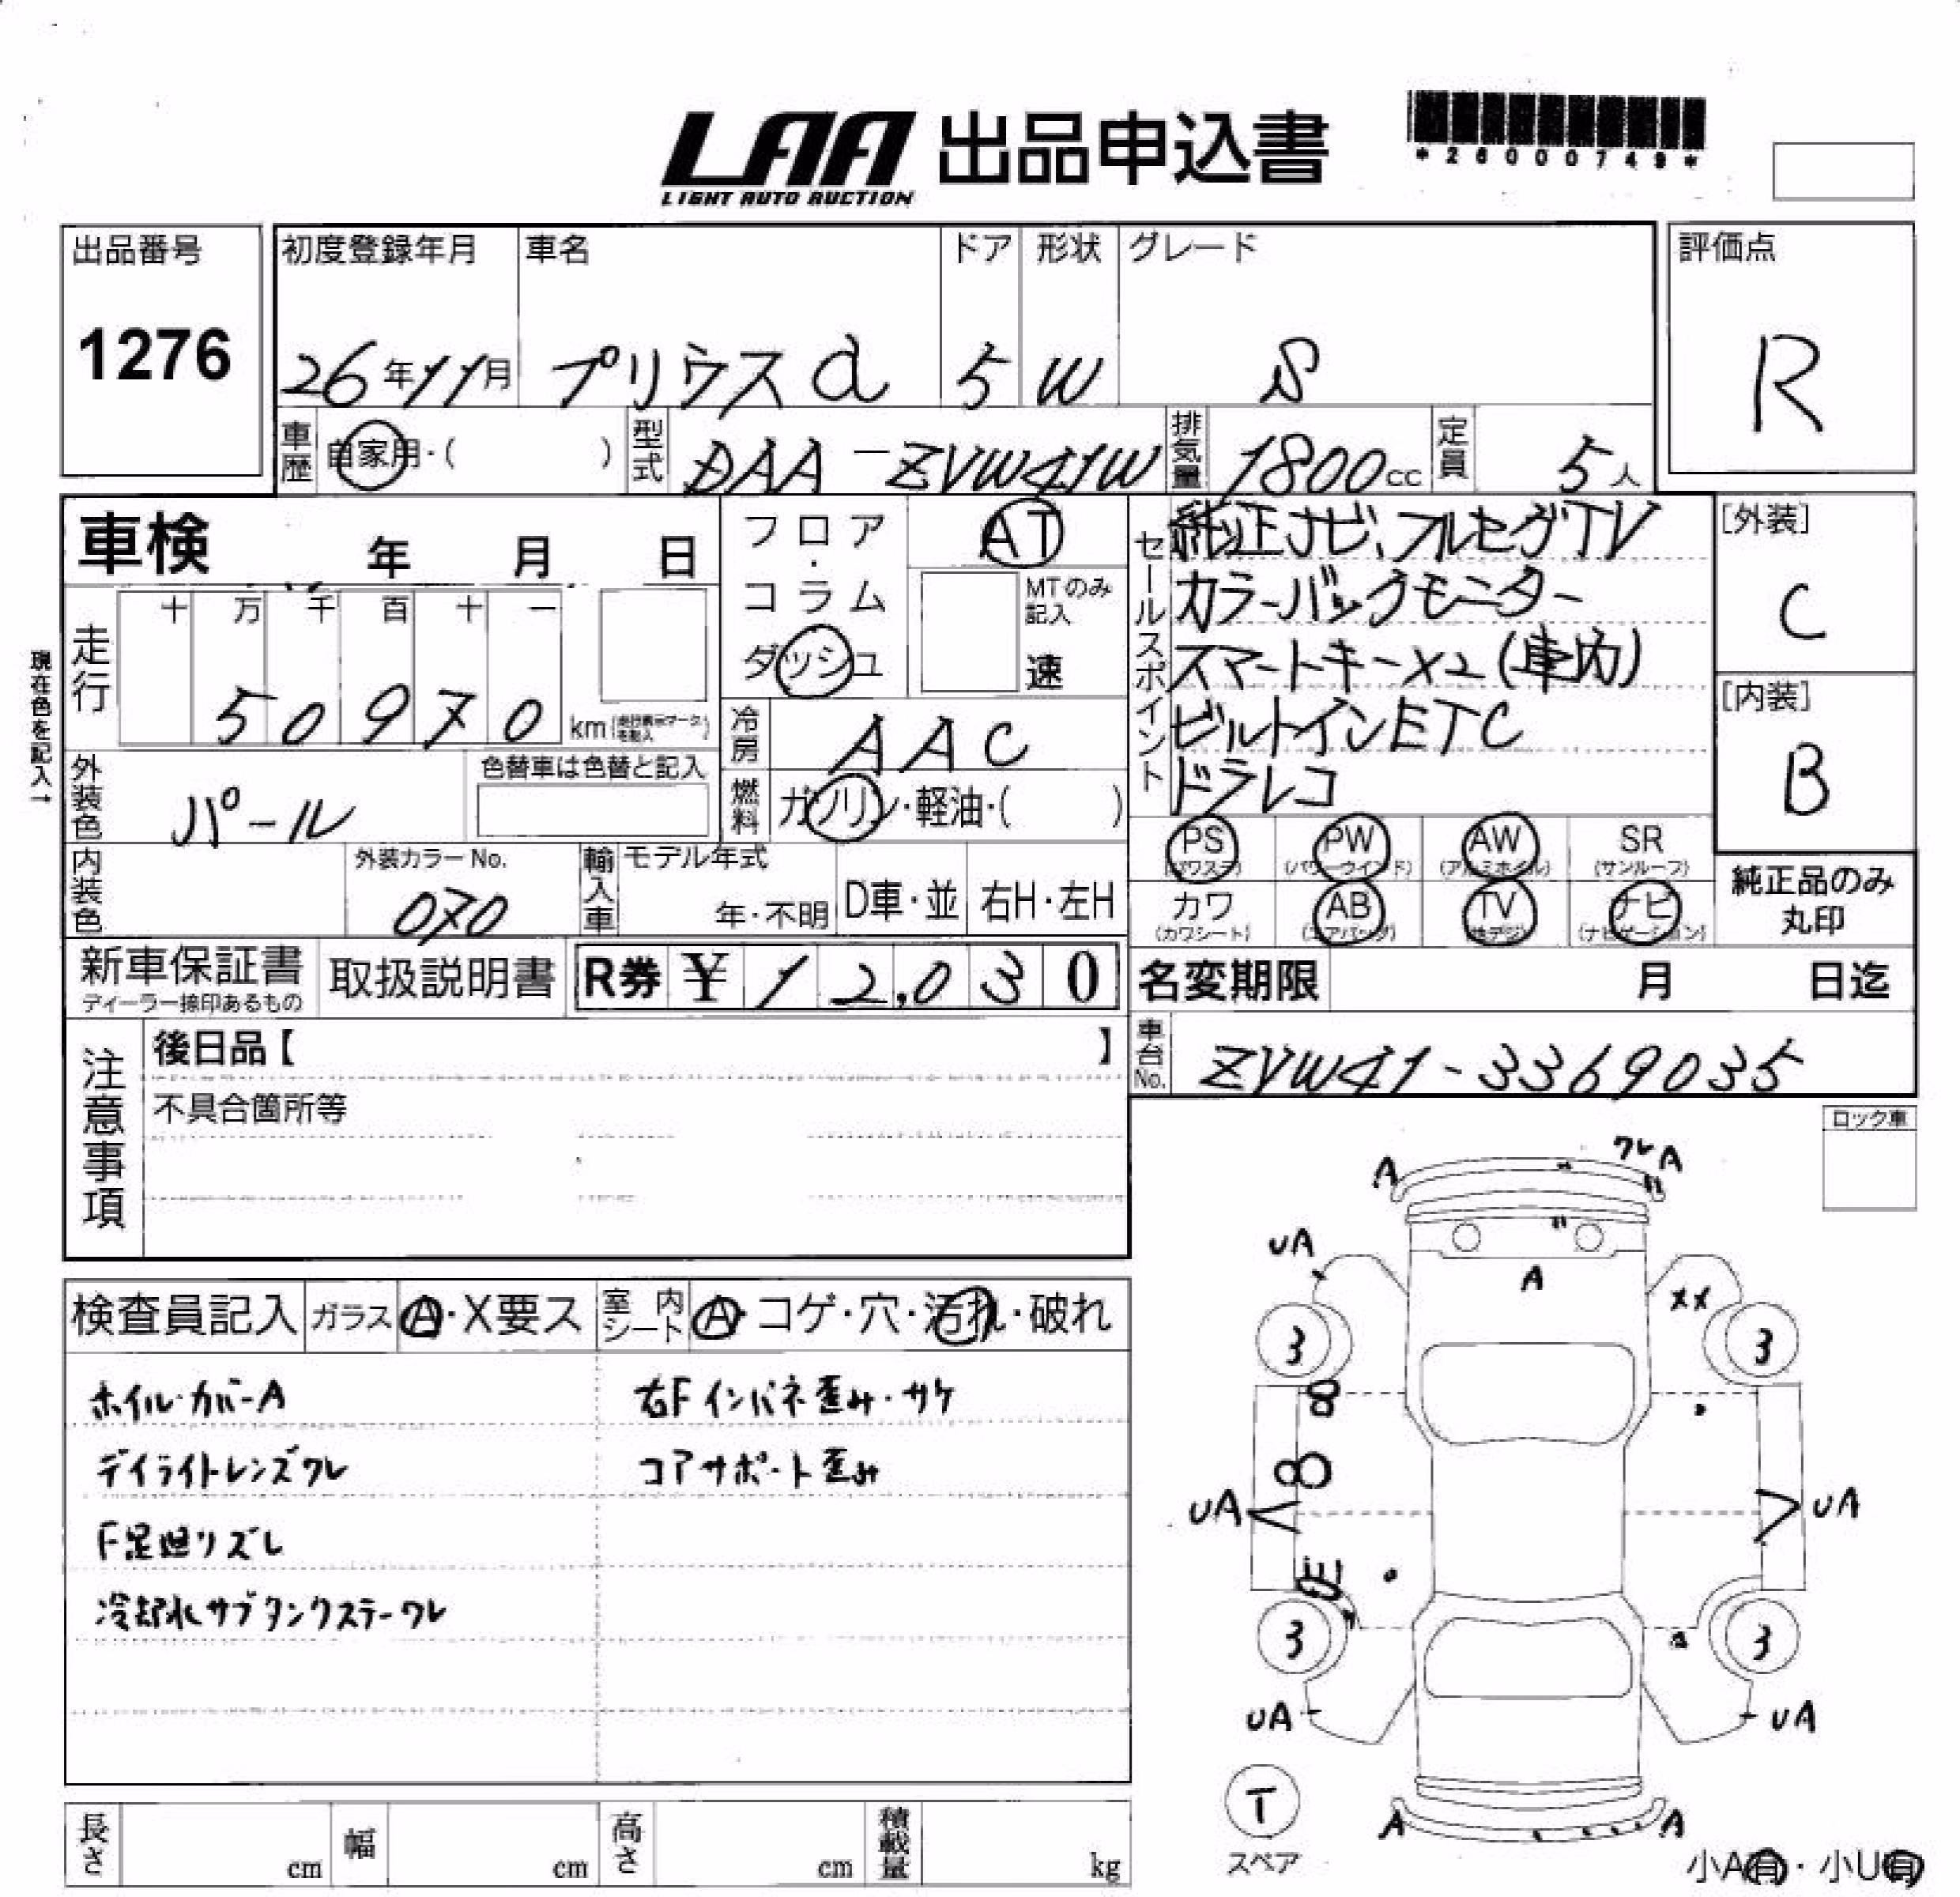 LAA 出品申込書
LIGHT AUTO AUCTION
*26000749*
出品番号
1276
初度登録年月 車名 ドア 形状 グレード
26年11月 プリウスα 5 W S
評価点
R
車歴 自家用・( ) 型式 DAA-ZVW41W 排気量 1800cc 定員 5人
車検 年 月 日
現在色を記入→
走行 十 万 千 百 十 一
50970 km
外装色 パール 色替車は色替と記入
内装色 外装カラーNo. 070
輸入車 モデル年式 年・不明 D車・並 右H・左H
フロア・コラム
ダッシュ
AT
MTのみ記入
速
冷房 AAC
燃料 ガソリン・軽油・( )
セールスポイント
純正ナビ、フルセグTV
カラーバックモニター
スマートキー×2(車内)
ビルトインETC
ドラレコ
[外装]
C
[内装]
B
PS PW AW SR
(パワステ) (パワーウインド) (アルミホイル) (サンルーフ)
カワ AB TV ナビ
(カワシート) (エアバッグ) (地デジ) (ナビゲーション)
純正品のみ
丸印
新車保証書 取扱説明書 R券 ¥ 12,030
ディーラー捺印あるもの
名変期限 月 日迄
車台No. ZVW41-3369035
注意事項
後日品【 】
不具合箇所等
ロック車
検査員記入 ガラス A・X要ス 室内シート A・コゲ・穴・汚れ・破れ
ホイルカバーA
デイライトレンズワレ
F足廻りズレ
冷却水サブタンクステーワレ
右Fインパネ歪み・サケ
コアサポート歪み
A ワレA
UA
A
XX
3 3
8
8
UA UA
3 3
UA UA
T
スペア
A A
小A有・小U有
長さ cm 幅 cm 高さ cm 積載量 kg